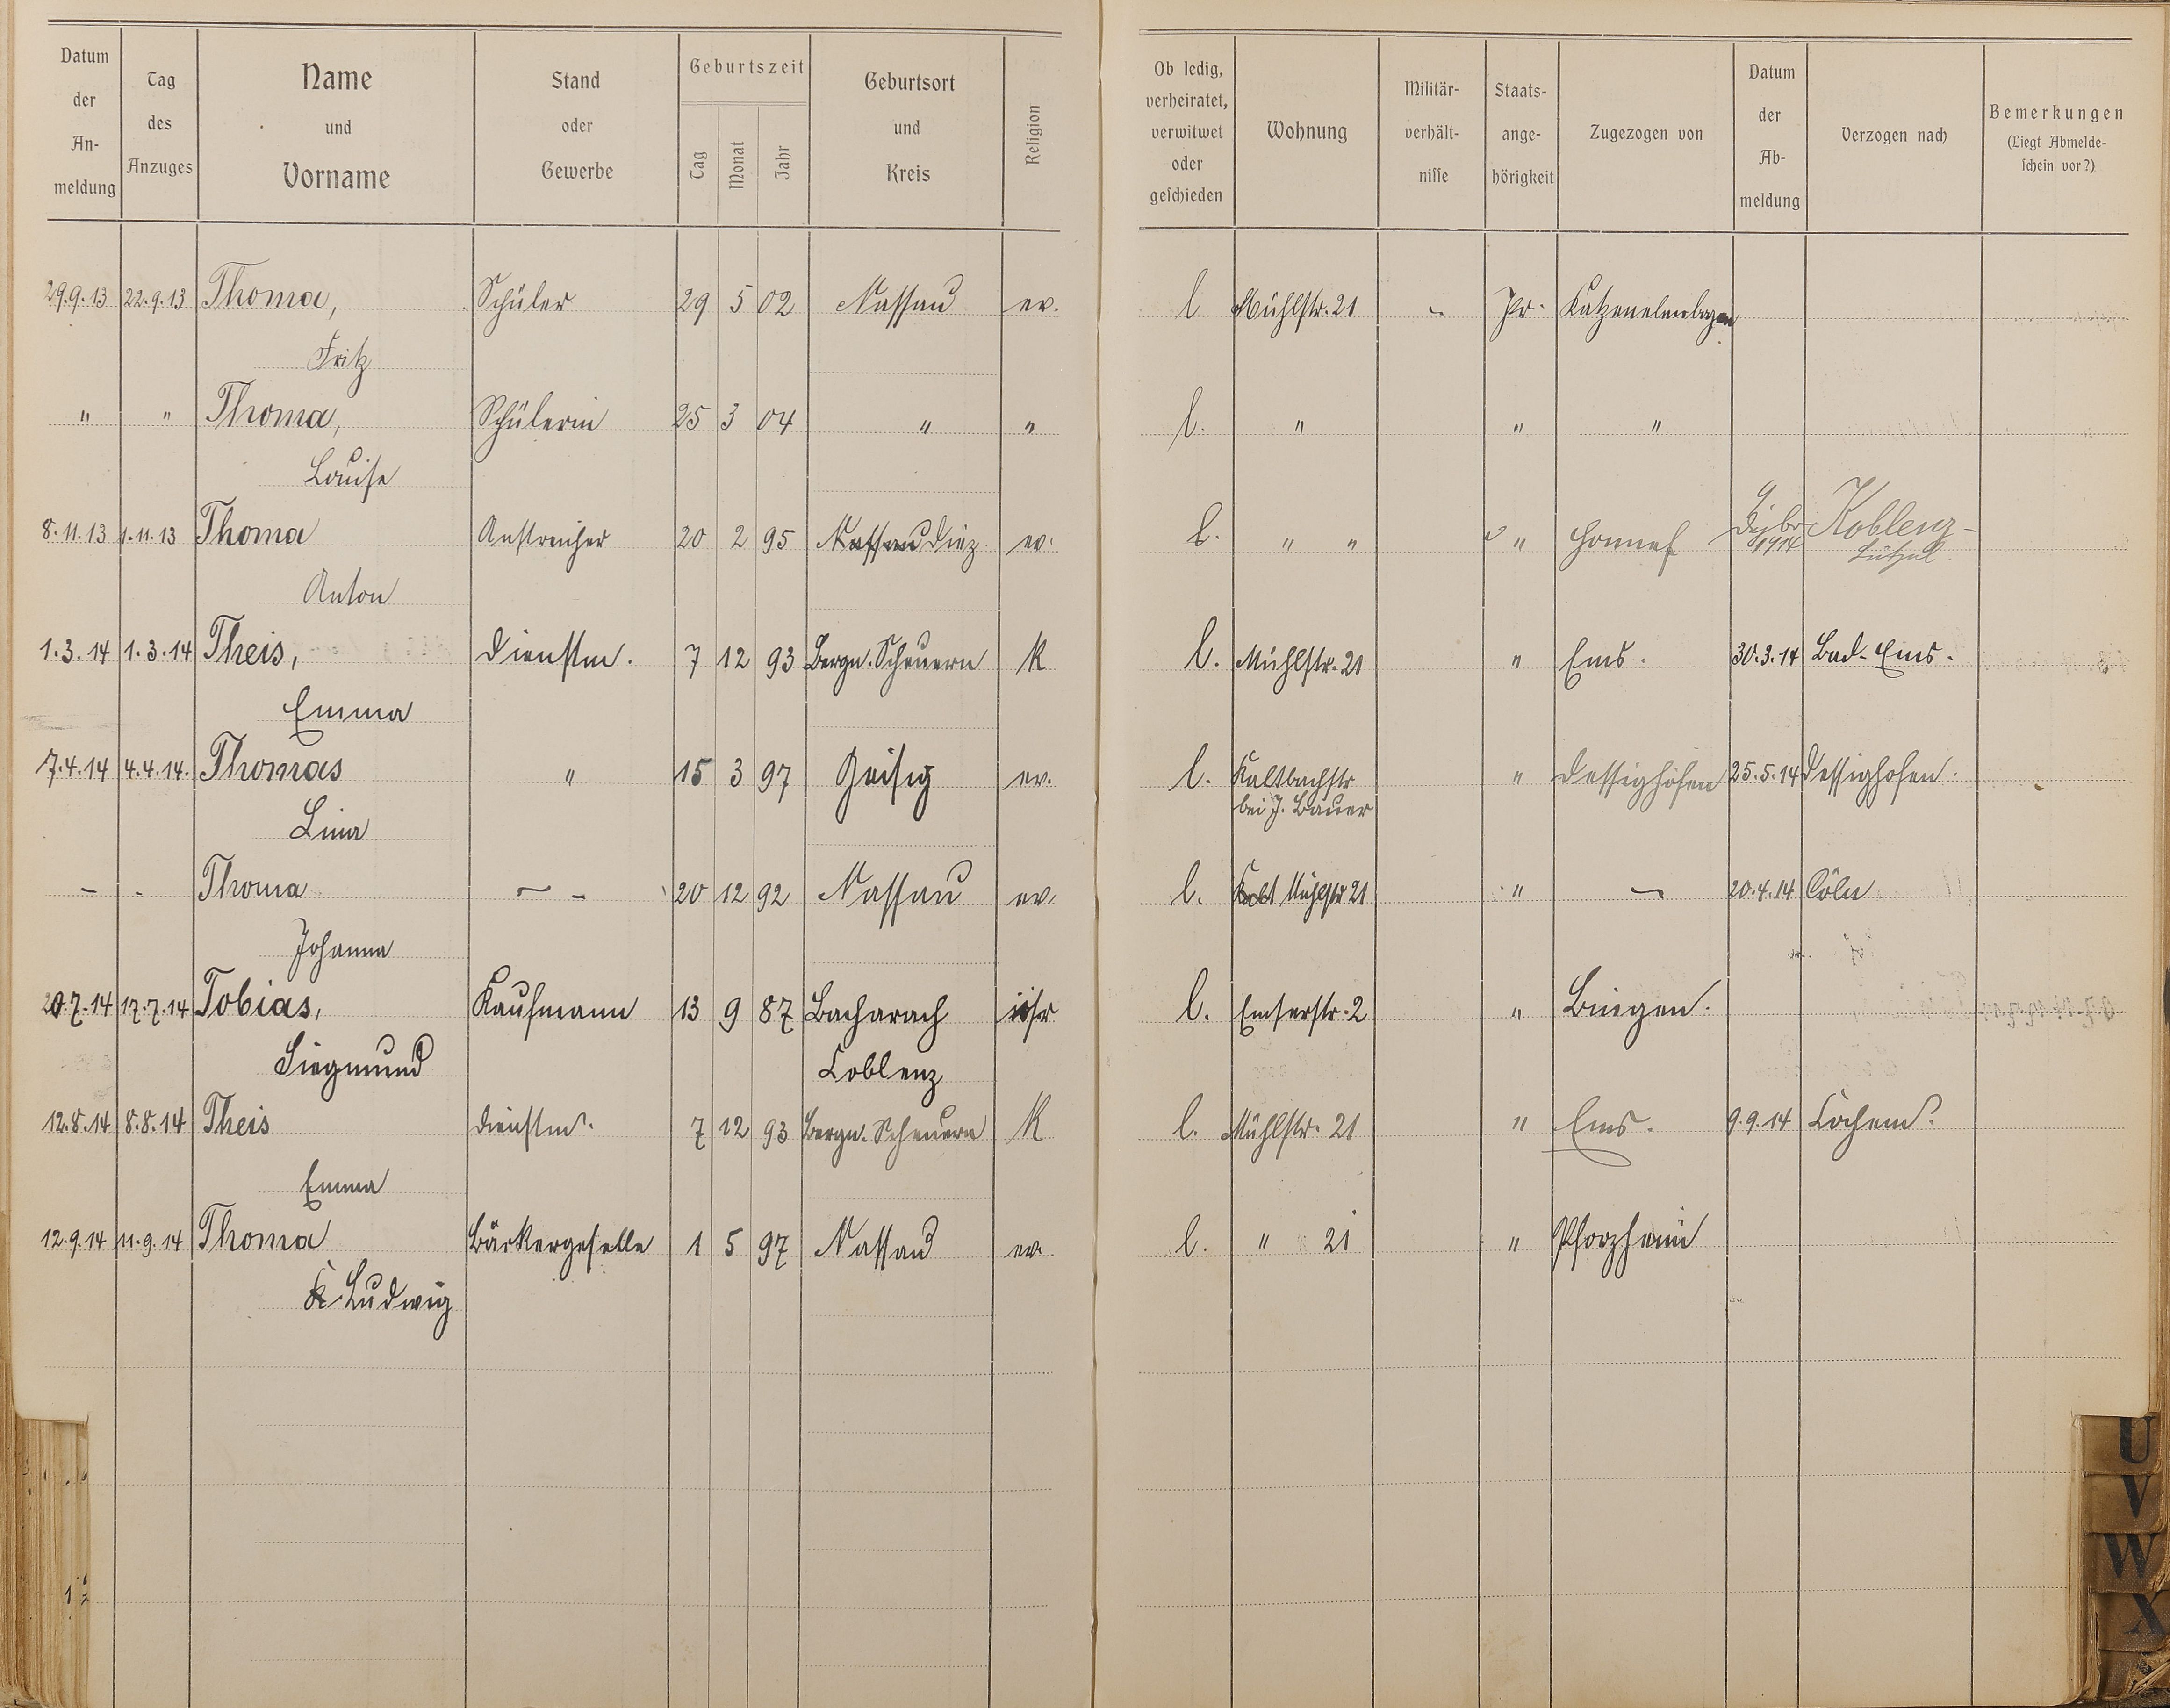 Datum der An-meldung | Tag des Anzuges | Name und Vorname | Stand oder Gewerbe | Geburtszeit Tag Monat Jahr | Geburtsort und Kreis | Religion | Ob ledig, verheiratet, verwitwet oder geschieden | Wohnung | Militär-verhält-nisse | Staats-ange-hörigkeit | Zugezogen von | Datum der Ab-meldung | Verzogen nach | Bemerkungen (Liegt Abmelde-schein vor?)
29.9.13 22.9.13 Thoma, Schüler 29 5 02 Nassau ev. l Mühlstr. 21 - Pr. Katzenelnbogen
Fritz
" " Thoma, Schülerin 25 3 04 " " l. " " "
Louise
8.11.13 1.11.13 Thoma Anstreicher 20 2 95 Nassau Diez ev. l. " " " Honnef 1914 Koblenz-
Lützel
Anton
1.3.14 1.3.14 Theis, Dienstm. 7 12 93 Bergn. Scheuern K l. Mühlstr. 21 " Ems. 30.3.14 Bad-Ems.
Emma
7.4.14 4.4.14. Thomas " 15 3 97 Geisig ev. l. Kaltbachstr " Dessighofen 25.5.14 Dessighofen.
bei J. Bauer
Lina
- - Thoma - - 20 12 92 Nassau ev. l. Kalt Mühlstr 21 " - 20.4.14 Cöln
Johanna
20.7.14 17.7.14 Tobias, Kaufmann 13 9 87 Bacharach isr l. Emserstr. 2 " Bingen.
Siegmund Coblenz
12.8.14 8.8.14 Theis Dienstm. 7 12 93 Bergn. Scheuern K l. Mühlstr. 21 " Ems. 9.9.14 Cochem.
Emma
12.9.14 11.9.14 Thoma Bäckergeselle 1 5 97 Nassau ev. l. " 21 " Pforzheim
K Ludwig
U
V
W
X